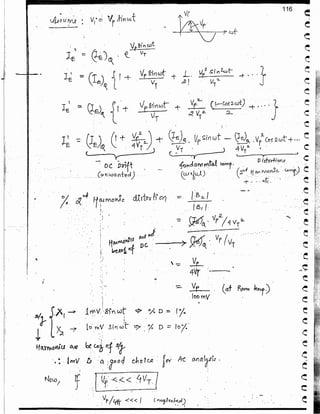 116
Vi = Vp sinωt
Vi
Vp
ωt
IE' = (IE)Q . e^(Vp sinωt / VT)
IE' = (IE)Q { 1 + Vp sinωt / VT + 1/2! Vp² sin²ωt / VT² + ... }
IE' = (IE)Q { 1 + Vp sinωt / VT + Vp² / 2VT² (1-cos2ωt) / 2 + ... }
IE' = (IE)Q (1 + Vp² / 4VT²) + (IE)Q . Vp sinωt / VT - (IE)Q . Vp² cos2ωt / 4VT² + ...
DC Drift
(unwanted)
fundamental comp.
(useful)
Distortions
(2nd Harmonic comp)
+ ... etc.
% 2nd Harmonic distortion = |B2| / |B1|
= (IE)Q . Vp² / 4VT²
(IE)Q . Vp / VT
Harmonics
DC
= Vp / 4VT
= Vp / 100mV (at Room temp.)
X1 → 1mV sinωt ⇒ % D = 1%
X2 → 10mV sinωt ⇒ % D = 10%
Harmonics are becoz of
∴ 1mV is a good choice for AC analysis.
Now, if Vp <<< 4VT
Vp/4VT <<< 1 (neglected)